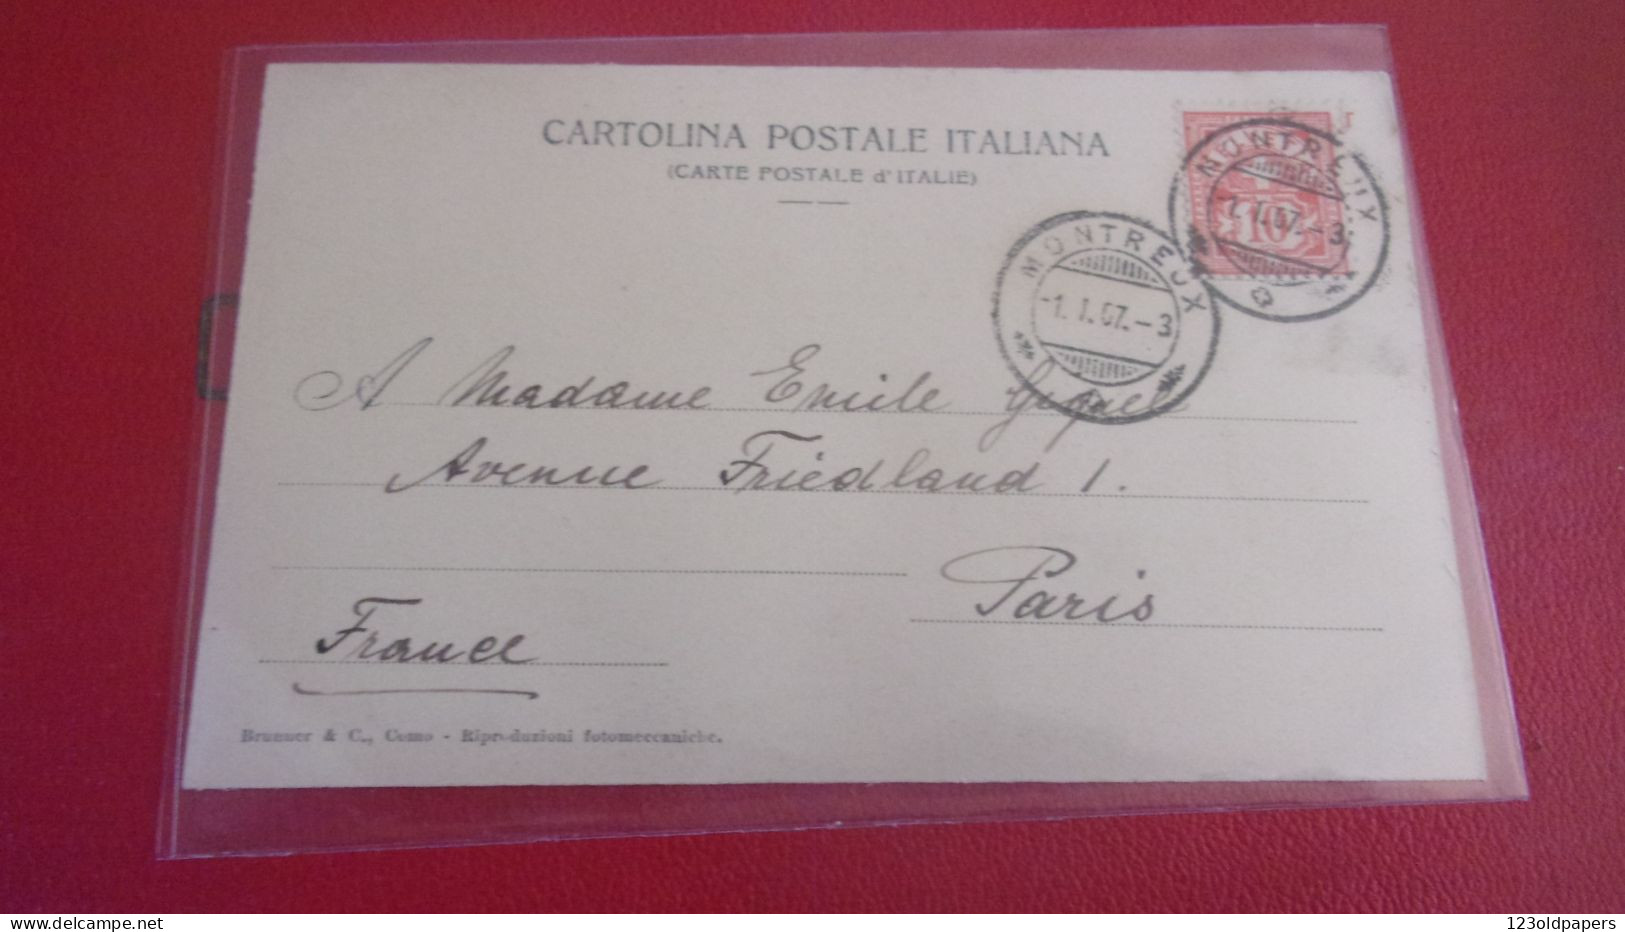 CARTOLINA POSTALE ITALIANA
(CARTE POSTALE d'ITALIE)
MONTREUX
-1. I. 07. -3
10
MONTREUX
-1. I. 07. -3
A Madame Emile
Avenue Friedland 1.
Paris
France
Brunner & C., Como - Riproduzioni fotomeccaniche.
123oldpapers
delcampe.net